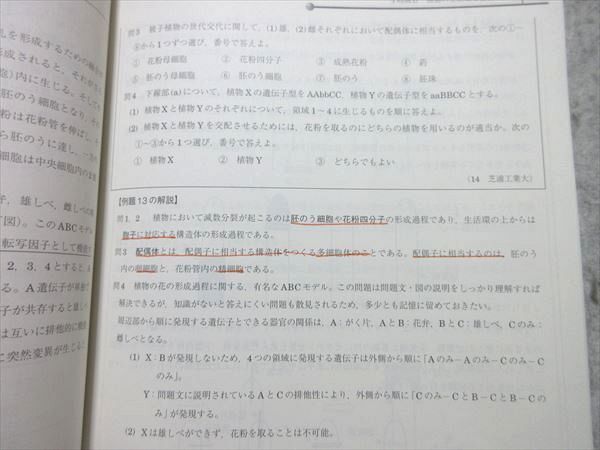 を形成するための
形成されると,それが
胞)内に生じる。そして
粉は花粉管を伸ばし,
ら胚のうに達し,
細胞は中央細胞内の
雄しべ,雌しべの
図)。このABCモデ
転写因子として機能
2,3,4とすると,
る。A遺伝子が単独で
子が共存すると雄し
は互いに排他的に機能
に突然変異が生じるこ
問3 被子植物の世代交代に関して,(1)雄,(2)雌それぞれにおいて配偶体に相当するものを,次の①~
⑧から1つずつ選び,番号で答えよ。
① 花粉母細胞 ② 花粉四分子 ③ 成熟花粉 ④ 葯
⑤ 胚のう母細胞 ⑥ 胚のう細胞 ⑦ 胚のう ⑧ 胚珠
問4 下線部(a)について,植物Xの遺伝子型をAAbbCC,植物Yの遺伝子型をaaBBCCとする。
(1) 植物Xと植物Yのそれぞれについて,領域1~4に生じるものを順に答えよ。
(2) 植物Xと植物Yを交配させるためには,花粉を取るのにどちらの植物を用いるのが適当か。次の
①~③から1つ選び,番号で答えよ。
① 植物X ② 植物Y ③ どちらでもよい
(14 芝浦工業大)
【例題13の解説】
問1,2 植物において減数分裂が起こるのは胚のう細胞や花粉四分子の形成過程であり,生活環の上からは
胞子に対応する構造体の形成過程である。
問3 配偶体とは,配偶子に相当する構造体をつくる多細胞体のことである。配偶子に相当するのは,胚のう
内の卵細胞と,花粉管内の精細胞である。
問4 植物の花の形成過程に関する,有名なABCモデル。この問題は問題文・図の説明をしっかり理解すれば
解決できるが,知識がないと答えにくい問題も散見されるため,多少とも記憶に留めておきたい。
周辺部から順に発現する遺伝子とできる器官の関係は,A:がく片,AとB:花弁,BとC:雄しべ,Cのみ:
雌しべとなる。
(1) X:Bが発現しないため,4つの領域に発現する遺伝子は外側から順に「Aのみ-Aのみ-Cのみ-C
のみ」。
Y:問題文に説明されているAとCの排他性により,外側から順に「Cのみ-CとB-CとB-Cの
み」が発現する。
(2) Xは雄しべができず,花粉を取ることは不可能。